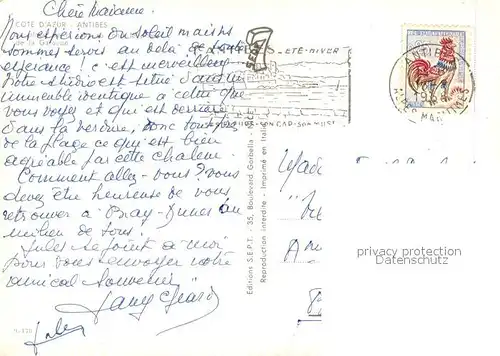 Chère Madame.
COTE D'AZUR ANTIBES
Nous espérions du soleil mais
sommes servis au delà de
espérance ! c'est merveilleux
Notre studio est situé dans un
immeuble identique à celui que
vous voyez et qui est derrière
dans la verdure, donc tout près
de la plage ce qui est bien
agréable par cette chaleur.
Comment allez-vous ? vous
devez être heureuse de vous
retrouver à Bray-Dunes au
milieu de tous !
Jules se joint à moi
pour vous envoyer notre
amical souvenir
Jules
Editions S.E.P.T. - 35, Boulevard Garibella - Nice
Reproduction interdite - Imprimé en Italie
ÉTÉ-HIVER
SON CAP-SON
ANTIBES
ALPES MARITIMES
privacy protection
Datenschutz